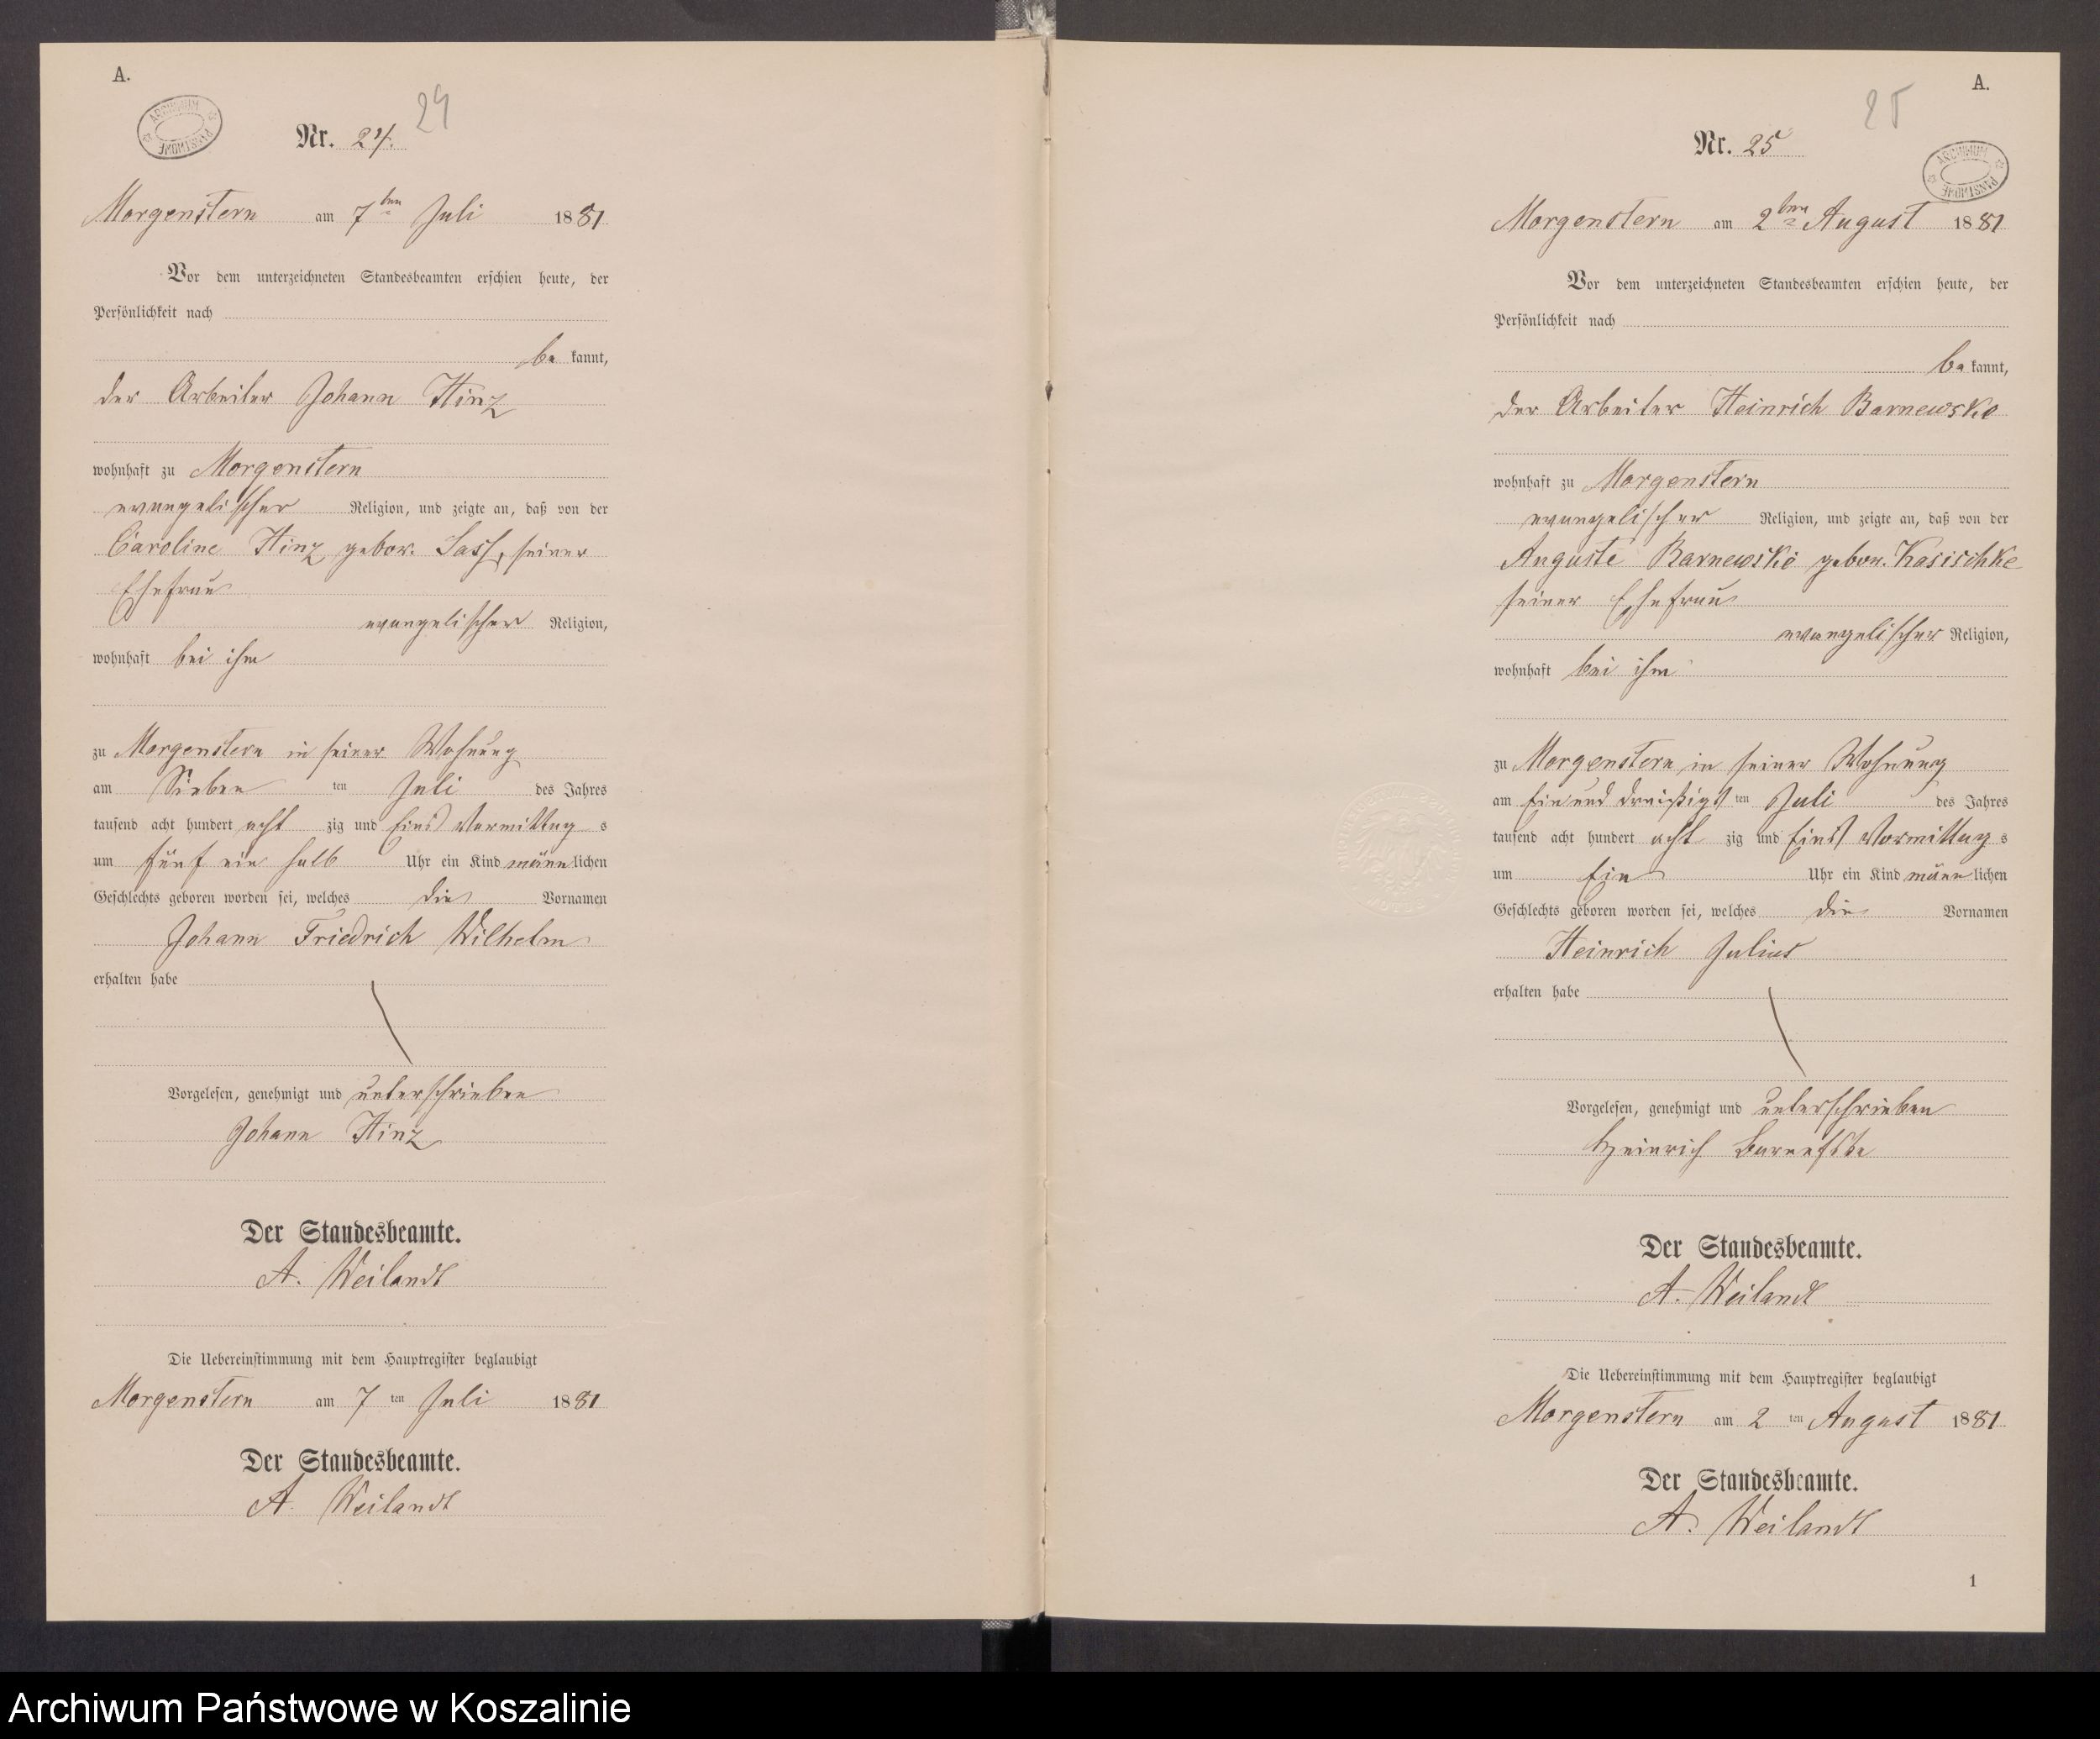 A.
ARCHIWUM PAŃSTWOWE
24
Nr. 24.
Morgenstern am 7ten Juli 1881
Vor dem unterzeichneten Standesbeamten erschien heute, der
Persönlichkeit nach
be kannt,
der Arbeiter Johann Hinz
wohnhaft zu Morgenstern
evangelischer Religion, und zeigte an, daß von der
Caroline Hinz gebor. Sass, seiner
Ehefrau
evangelischer Religion,
wohnhaft bei ihm
zu Morgenstern in seiner Wohnung
am Sieben ten Juli des Jahres
tausend acht hundert acht zig und Eins Vormittag s
um fünf ein halb Uhr ein Kind männ lichen
Geschlechts geboren worden sei, welches die Vornamen
Johann Friedrich Wilhelm
erhalten habe
Vorgelesen, genehmigt und unterschrieben
Johann Hinz
Der Standesbeamte.
A. Weilandt
Die Uebereinstimmung mit dem Hauptregister beglaubigt
Morgenstern am 7 ten Juli 1881
Der Standesbeamte.
A. Weilandt
A.
25
Nr. 25
ARCHIWUM PAŃSTWOWE
Morgenstern am 2ten August 1881
Vor dem unterzeichneten Standesbeamten erschien heute, der
Persönlichkeit nach
be kannt,
der Arbeiter Heinrich Barnewske
wohnhaft zu Morgenstern
evangelischer Religion, und zeigte an, daß von der
Auguste Barnewske gebor. Kasischke
seiner Ehefrau
evangelischer Religion,
wohnhaft bei ihm
zu Morgenstern in seiner Wohnung
am Ein und dreißigst ten Juli des Jahres
tausend acht hundert acht zig und Eins Vormittag s
um Ein Uhr ein Kind männ lichen
Geschlechts geboren worden sei, welches die Vornamen
Heinrich Julius
erhalten habe
Vorgelesen, genehmigt und unterschrieben
Heinrich
Der Standesbeamte.
A. Weilandt
Die Uebereinstimmung mit dem Hauptregister beglaubigt
Morgenstern am 2 ten August 1881
Der Standesbeamte.
A. Weilandt
1
Archiwum Państwowe w Koszalinie